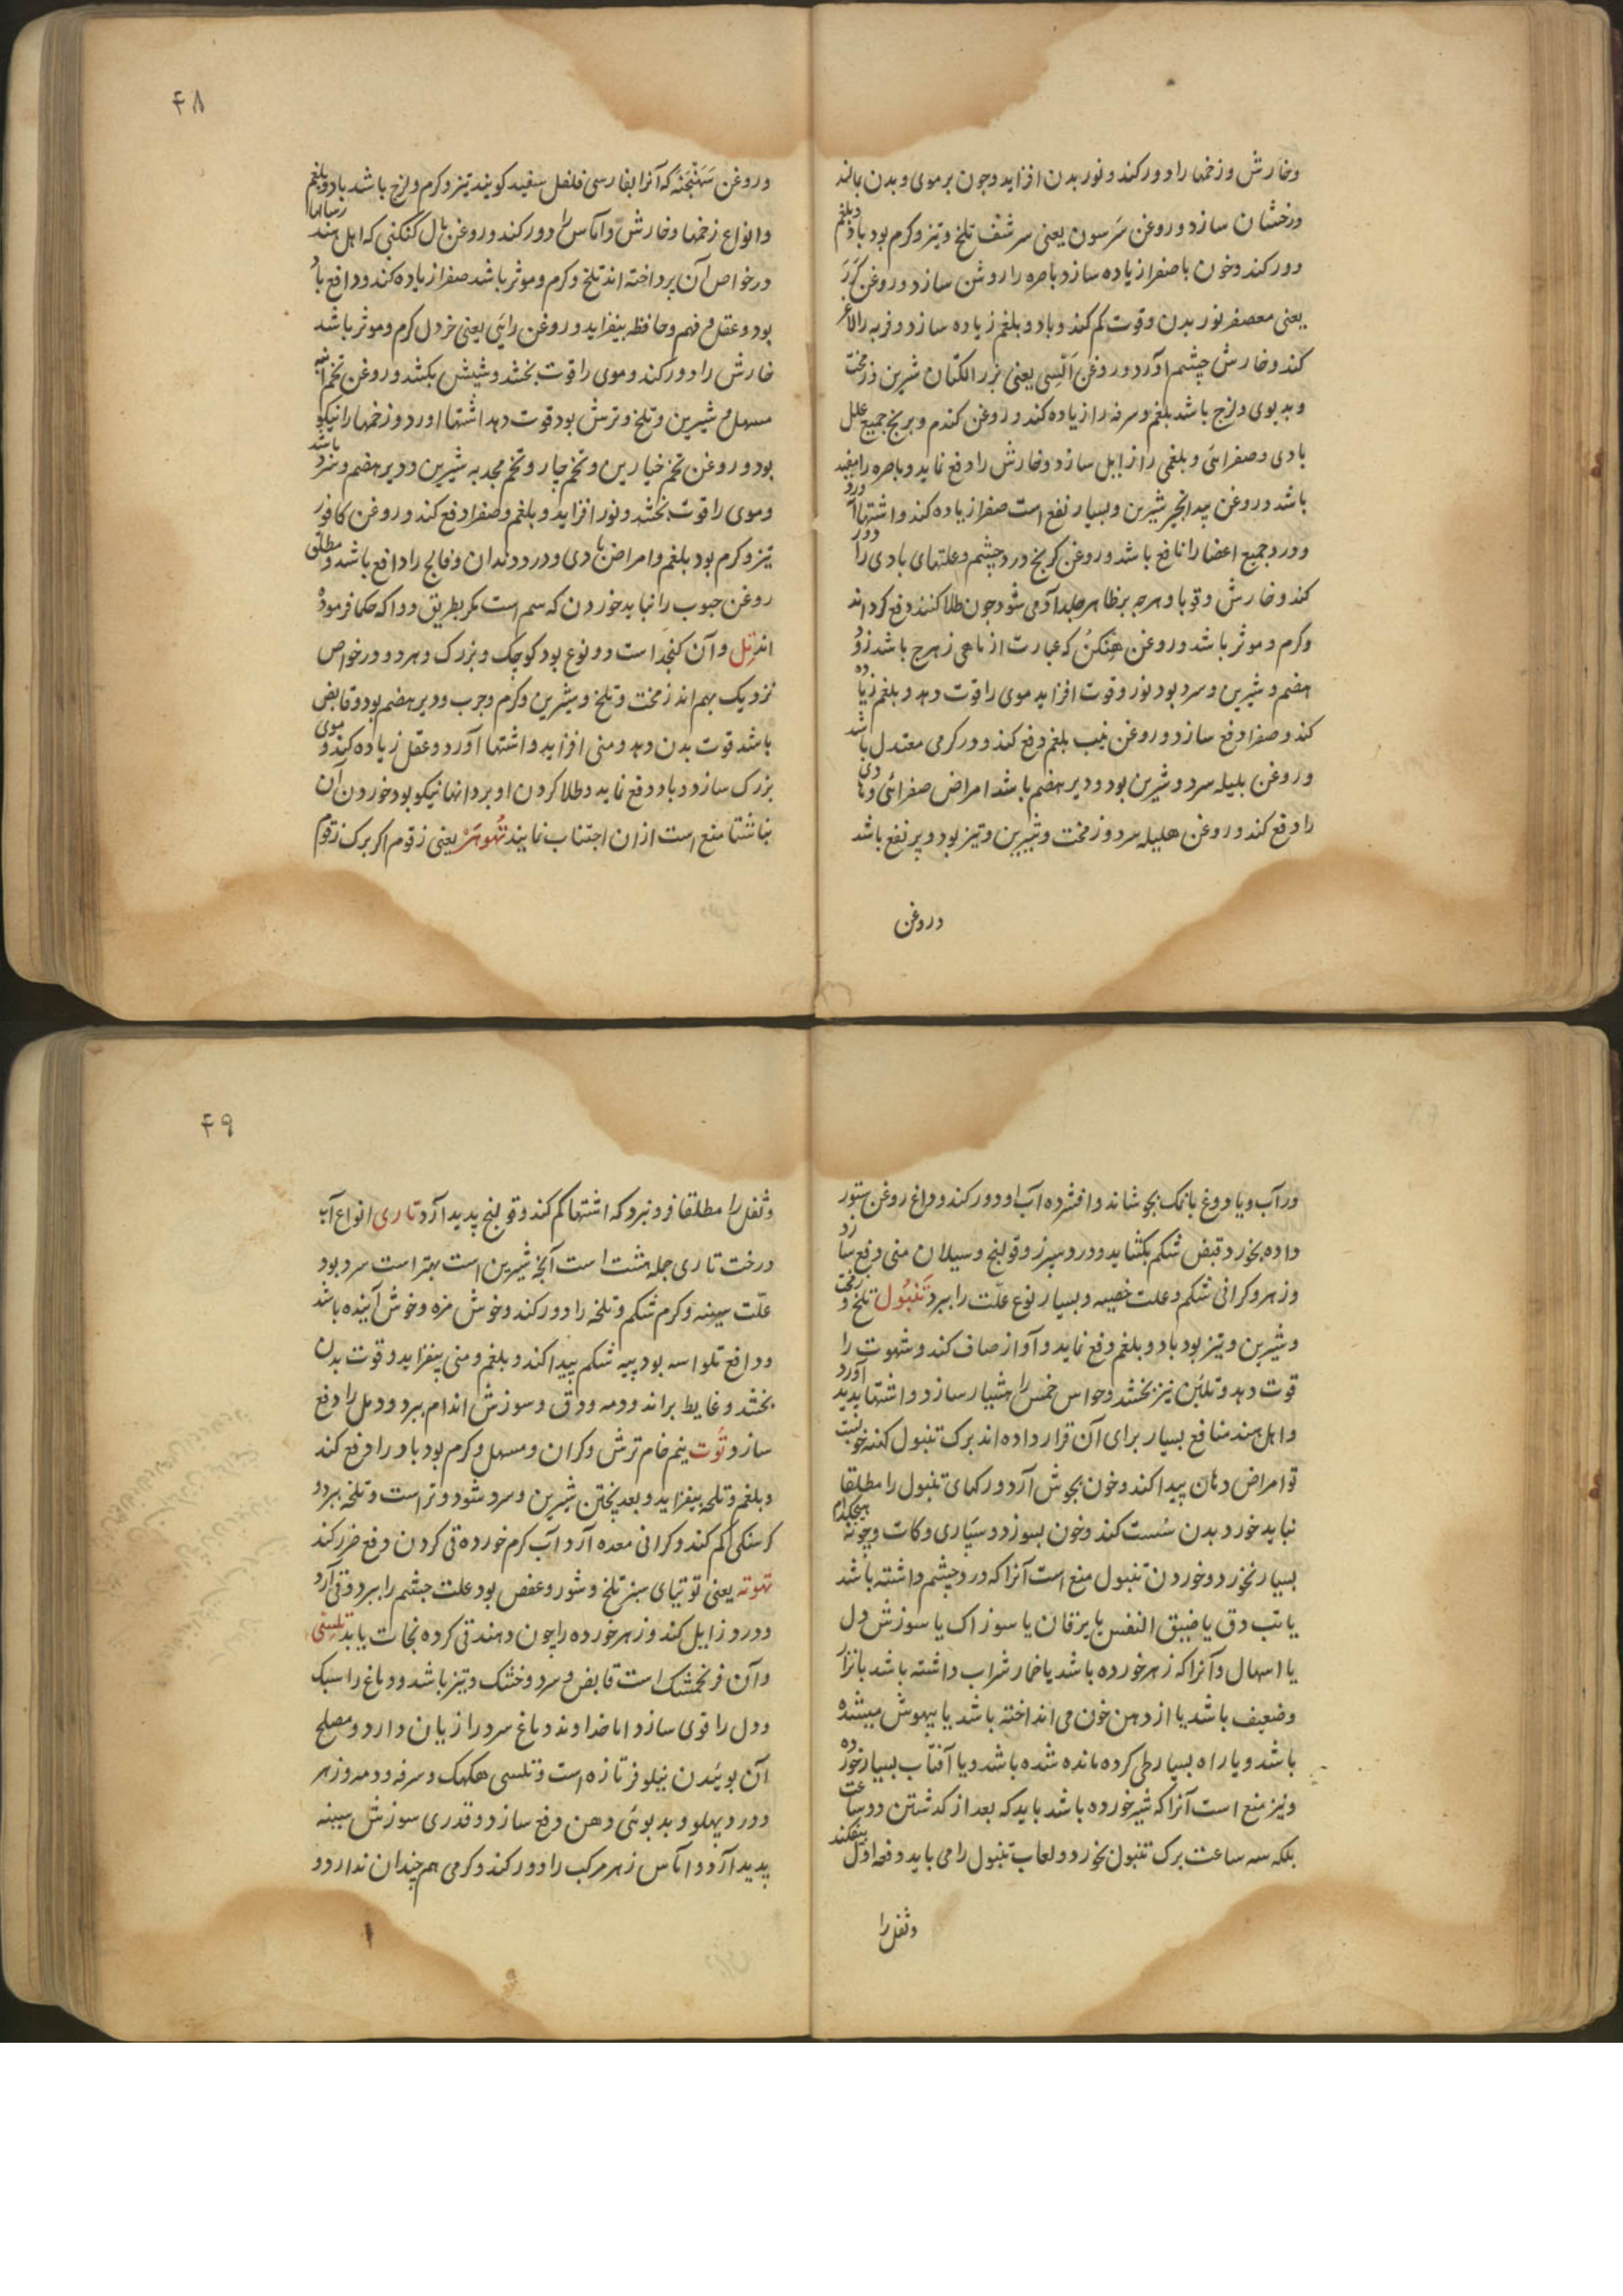 وخارش و زخمها را دور کند و نور بدن افزاید و چون بر موی و بدن بمالند
درخشان سازد و روغن سَرسون یعنی سرشف تلخ و تیز و کرم بود باد و بلغم
دور کند و خون با صفرا زیاده سازد و باصره را روشن سازد و روغن کَرَر
یعنی معصفر نور بدن و قوت کم کند و باد و بلغم زیاده سازد و فربه را لاغر
کند و خارش چشم آورد و روغن اَلَسِی یعنی بزر الکتان شیرین و زمخت
و بد بوی و لزج باشد بلغم و سرفه را زیاده کند و روغن کندم و برنج جمیع علل
بادی و صفرائی و بلغمی را زایل سازد و خارش را دفع نماید و باصره را مفید
باشد و روغن بیدانجیر شیرین و بسیار نفع است صفرا زیاده کند و اشتها آورد
و درد جمیع اعضا را نافع باشد و روغن کرنج درد چشم و علتهای بادی را دور
کند و خارش و قوبا و هرچه بر ظاهر جلد آدمی شود چون طلا کنند دفع کرداند
و کرم و موثر باشد و روغن هِنکَن که عبارت از ماهی زهرج باشد زود
هضم و شیرین و سرد بود نور و قوت افزاید موی را قوت دهد و بلغم زیاده
کند و صفرا دفع سازد و روغن نیب بلغم دفع کند و در کرمی معتدل باشد
و روغن بلیله سرد و شیرین بود و دیر هضم باشد امراض صفرائی و بادی
را دفع کند و روغن هلیله سرد و زمخت و شیرین و تیز بود و پر نفع باشد
و روغن
۴۸
و روغن سَهَنجَنَه که آنرا بفارسی فلفل سفید کویند تیز و کرم و لزج باشد باد و بلغم
و انواع زخمها و خارش و آماس را دور کند و روغن مال کنکنی که اهل هند رساها
در خواص آن پرداخته اند تلخ و کرم و موثر باشد صفرا زیاده کند و دافع باد
بود و عقل و فهم و حافظه بیفزاید و روغن رایی یعنی خردل کرم و موثر باشد
خارش را دور کند و موی را قوت بخشد و شپش بکشد و روغن تخم انبه
مسهل و شیرین و تلخ و ترش بود قوت دهد اشتها اورد و زخمها را نیکو
بود و روغن تخم خیارین و تخم چار و تخم مجدبه شیرین و دیر هضم و سرد باشد
و موی را قوت بخشد و نور افزاید و بلغم و صفرا دفع کند و روغن کافور
تیز و کرم بود بلغم و امراض بادی و درد دندان و فالج را دافع باشد و مطلق
روغن حبوب را نباید خوردن که سم است مکر بطریق دوا که حکما فرموده
اند تِل و آن کنجد است دو نوع بود کوچک و بزرک و هر دو در خواص
نزدیک بهم اند زمخت و تلخ و شیرین و کرم و چرب و دیر هضم بود و قابض
باشد قوت بدن دهد و منی افزاید و اشتها آورد و عقل زیاده کند و موی
بزرک سازد و باد دفع نماید و طلا کردن او بر دانها نیکو بود خوردن آن
بناشتا منع است از ان اجتناب نمایند تُهوهَر یعنی زقوم اکر برک زقوم
در آب و یا دوغ با نمک بجوشاند و افشرده آب او دور کند و داغ روغن ستور
داده بخورد قبض شکم بکشاید و درد سپرز و قولنج و سیلان منی دفع سازد
و زهر و کرانی شکم و علت خصیه و بسیار نوع علّت را ببرد تَنبُول تلخ و زمخت
و شیرین و تیز بود باد و بلغم دفع نماید و آواز صاف کند و شهوت را
قوت دهد و تلیّن نیز بخشد و حواس خمس را هشیار سازد و اشتها پدید آورد
و اهل هند منافع بسیار برای آن قرار داده اند برک تنبول کهنه خوبست
نو امراض دهان پیدا کند و خون بجوش آرد و رکهای تنبول را مطلقا
نباید خورد بدن سُست کند و خون بسوزد و سپاری و کات و چونه هیچکدام
بسیار نخورد و خوردن تنبول منع است آنرا که درد چشم داشته باشد
یا تب دق یا ضیق النفس یا یرقان یا سوزاک یا سوزش دل
یا اسهال و آنرا که زهر خورده باشد یا خمار شراب داشته باشد یا نزار
و ضعیف باشد یا از دهن خون می انداخته باشد یا بیهوش میشده
باشد و یا راه بسیار طی کرده مانده شده باشد و یا آفتاب بسیار خورده
و نیز منع است آنرا که شیر خورده باشد باید که بعد از کذشتن دو ساعت
بلکه سه ساعت برک تنبول بخورد و لعاب تنبول را می باید دفعه اول بیفکند
و ثفل را
۴۹
و ثفل را مطلقا فرو نبرد که اشتها کم کند و قولنج پدید آرد تاری انواع آب
درخت تاری جمله هشت است آنچه شیرین است بهتر است سرد بود
علّت سینه و کرم شکم و تلخه را دور کند و خوش مزه و خوش آینده باشد
و دافع تلواسه بود پیه شکم پیدا کند و بلغم و منی بیفزاید و قوت بدن
بخشد و غایط براند و دمه و دق و سوزش اندام ببرد و دمل را دفع
سازد تُوت نیم خام ترش و کران و مسهل و کرم بود باد را دفع کند
و بلغم و تلخه بیفزاید و بعد پختن شیرین و سرد شود و تر است و تلخه ببرد و
کرسنکی کم کند و کرانی معده آرد آب کرم خورده قی کردن دفع ضرر کند
تهوته یعنی توتیای سبز تلخ و شور و عفص بود علت چشم را ببرد و قی آرد
و درد زایل کند و زهر خورده را چون دهند قی کرده نجات یابد تلسی
و آن فرنجمشک است قابض و سرد و خشک و تیز باشد و دماغ را سبک
و دل را قوی سازد اما خداوند دماغ سرد را زیان دارد و مصلح
آن بوئیدن نیلوفر تازه است و تلسی هکهک و سرفه و دمه و زهر
و درد پهلو و بد بوئی دهن دفع سازد و قدری سوزش سینه
پدید آرد و آماس زهر مرکب را دور کند و کرمی هم چندان ندارد و